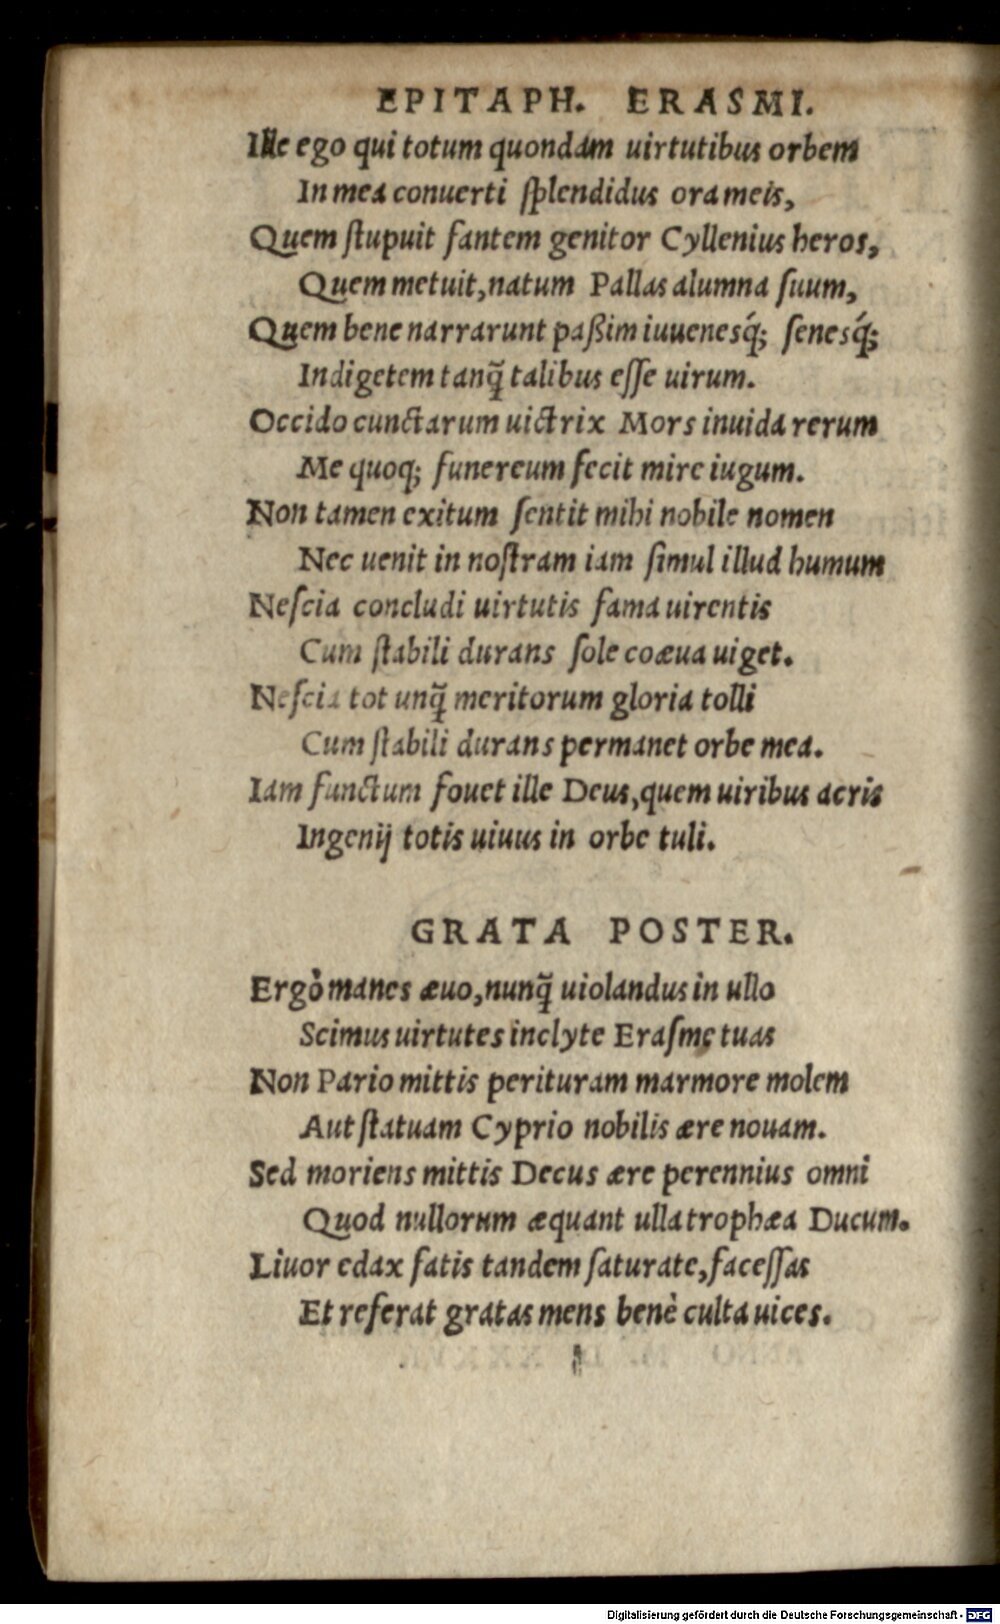 EPITAPH. ERASMI.
Ille ego qui totum quondam uirtutibus orbem
In mea conuerti splendidus ora meis,
Quem stupuit fantem genitor Cyllenius heros,
Quem metuit, natum Pallas alumna suum,
Quem bene narrarunt paßim iuuenesq́; senesq́;
Indigetem tanq̃ talibus esse uirum.
Occido cunctarum uictrix Mors inuida rerum
Me quoq; funereum fecit mire iugum.
Non tamen exitum sentit mihi nobile nomen
Nec uenit in nostram iam simul illud humum
Nescia concludi uirtutis fama uirentis
Cum stabili durans sole coæua uiget.
Nescia tot unq̃ meritorum gloria tolli
Cum stabili durans permanet orbe mea.
Iam functum fouet ille Deus, quem uiribus acris
Ingenij totis uiuus in orbe tuli.
GRATA POSTER.
Ergò manes æuo, nunq̃ uiolandus in ullo
Scimus uirtutes inclyte Erasme tuas
Non Pario mittis perituram marmore molem
Aut statuam Cyprio nobilis ære nouam.
Sed moriens mittis Decus ære perennius omni
Quod nullorum æquant ulla trophæa Ducum.
Liuor edax fatis tandem saturate, facessas
Et referat gratas mens benè culta uices.
Digitalisierung gefördert durch die Deutsche Forschungsgemeinschaft - DFG